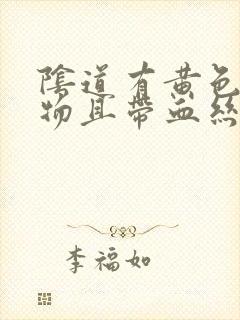 陰道有黃色
物且帶血絲
李福如